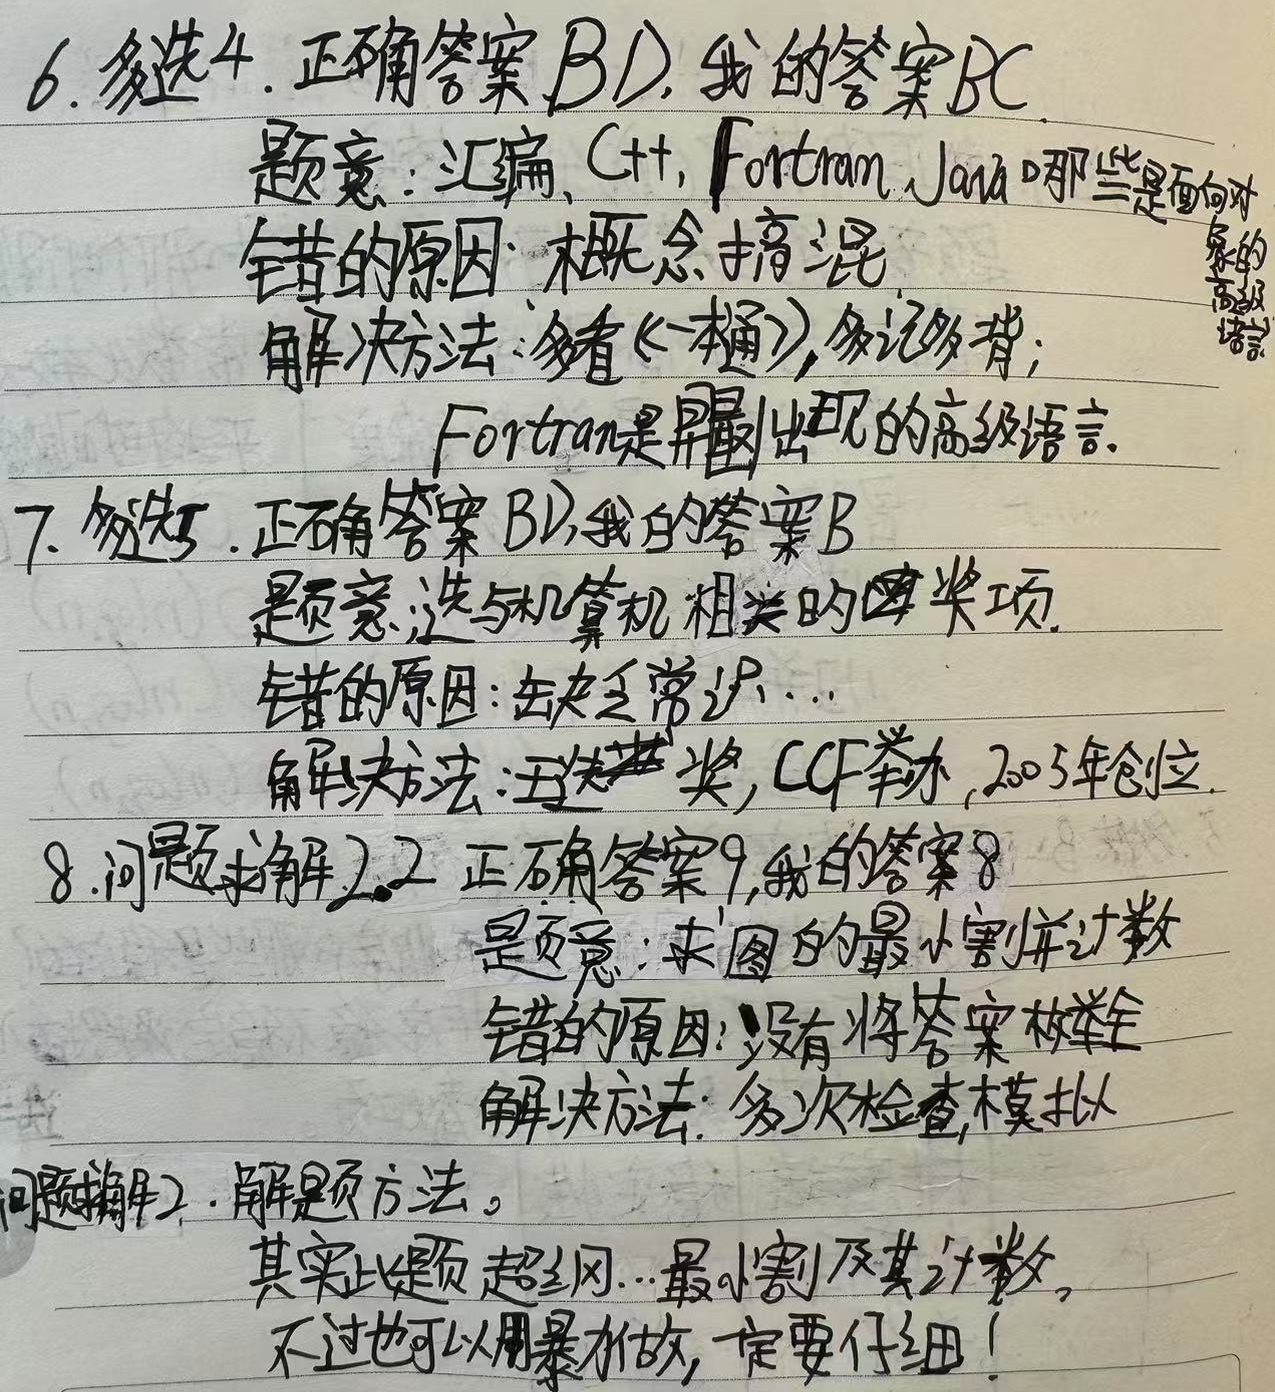 6. 多选4. 正确答案BD. 我的答案BC.
题意：汇编、C++, Fortran、Java 哪些是面向对
象的
高级
语言
错的原因：概念搞混.
解决方法：多看《一本通》，多记多背；
Fortran是最早出现的高级语言.
7. 多选5. 正确答案BD，我的答案B
题意：选与机算机相关的奖项.
错的原因：缺乏常识....
解决方法：王选奖，CCF举办，2005年创立.
8. 问题求解2.2 正确答案9，我的答案8
题意：求图的最小割并计数
错的原因：没有将答案枚举全
解决方法：多次检查，模拟
问题求解2. 解题方法。
其实此题超纲...最小割及其计数。
不过也可以用暴力做，一定要仔细！